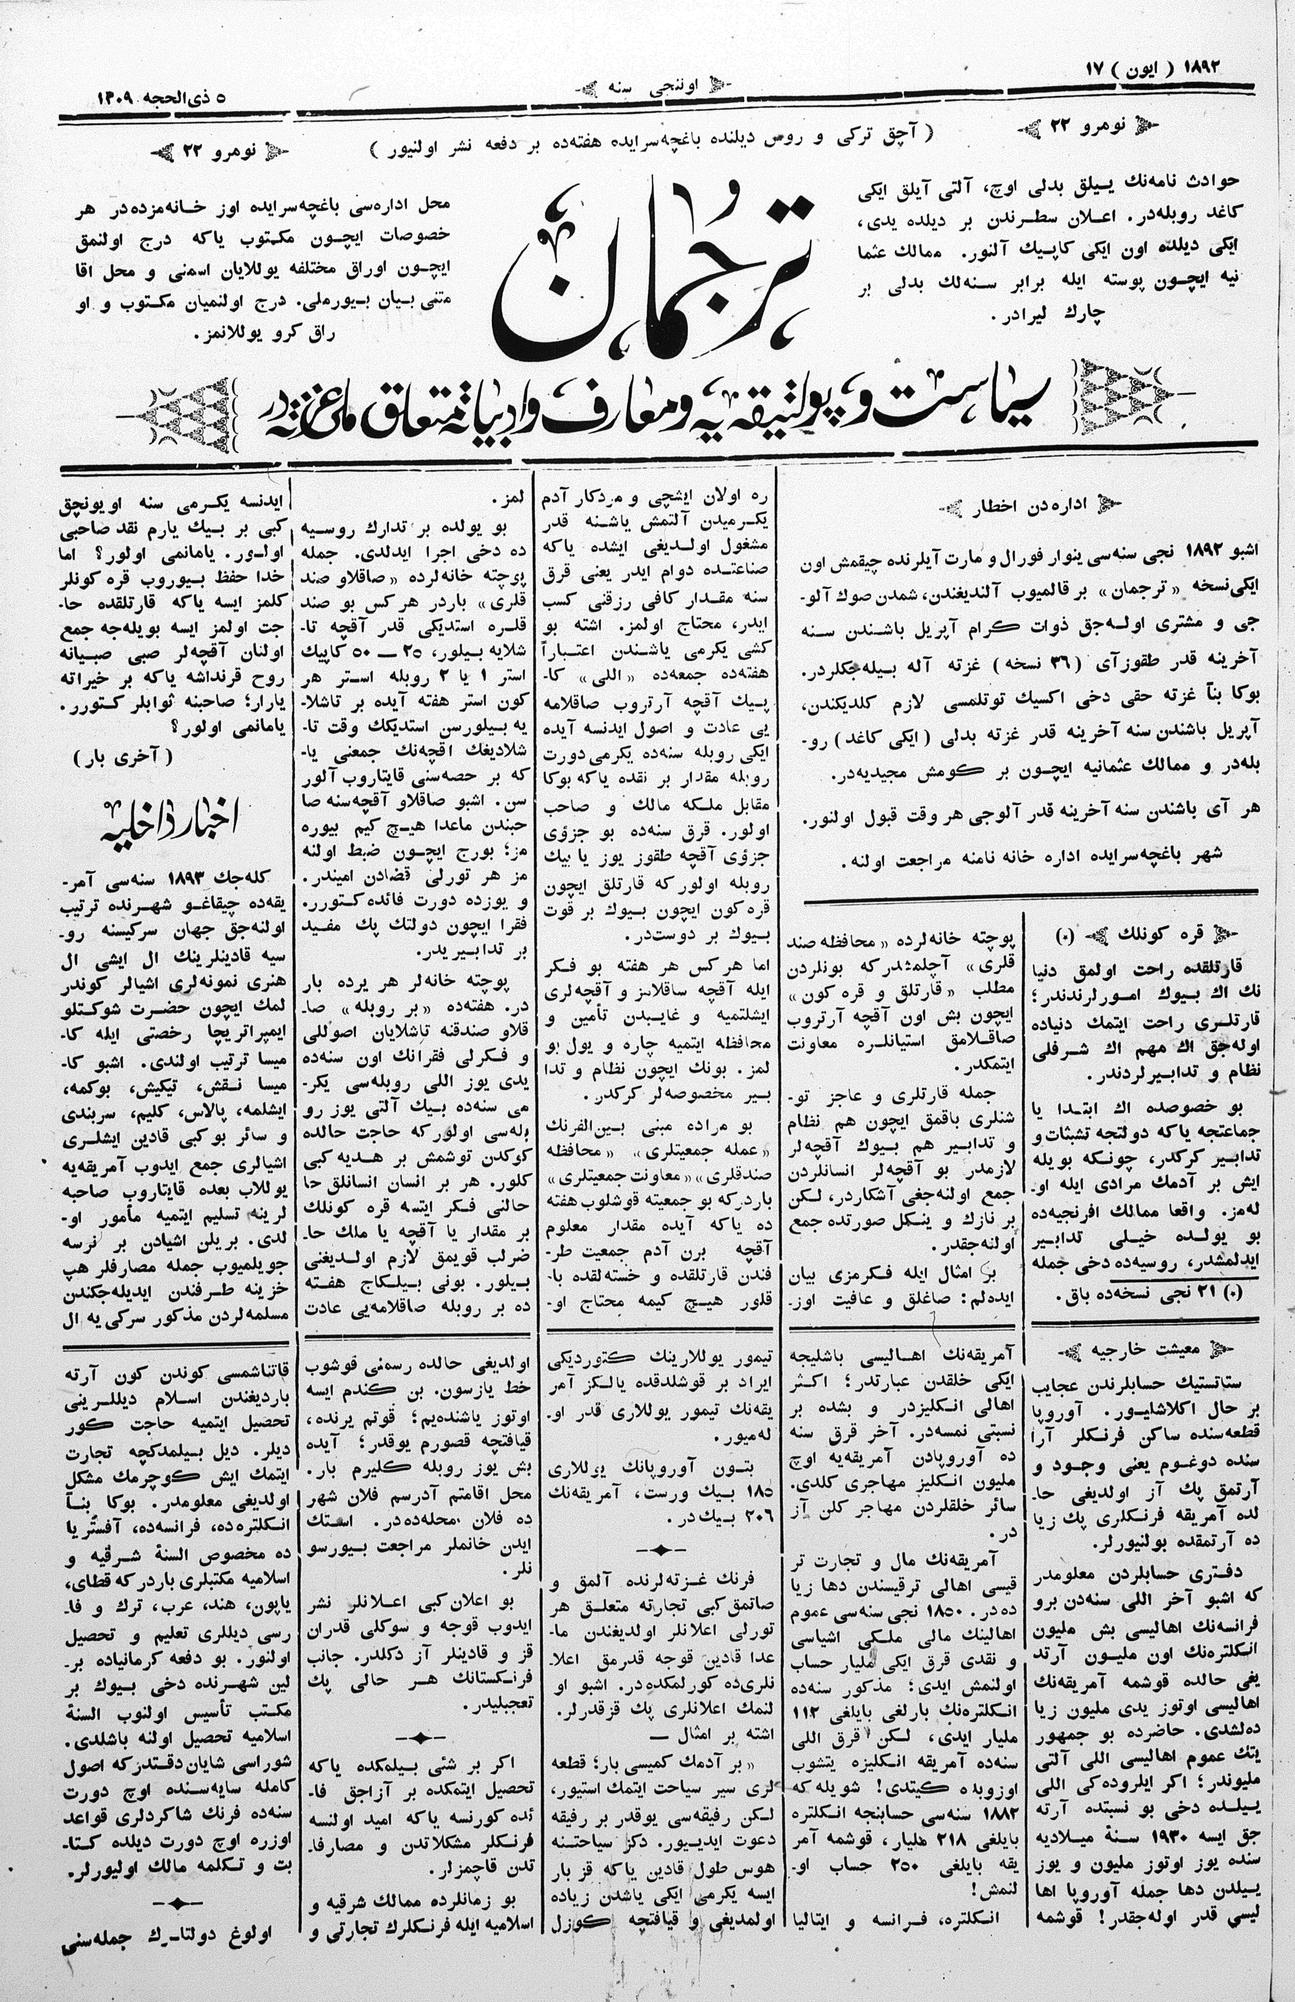 ١٨٩٢ ( ايون ) ١٧
اوننجى سنه
٥ ذى الحجه ١٣٠٩
نومرو ٢٢
( آچق تركى و روس ديلنده باغچه‌سرايده هفته‌ده بر دفعه نشر اولنيور )
نومرو ٢٢
حوادث نامه‌نك ييللق بدلى اوچ، آلتى آيلق ايكى
كاغد روبله‌در. اعلان سطرندن بر ديلده يدى،
ايكى ديلده اون ايكى كاپيك آلنور. ممالك عثما
نيه ايچون پوسته ايله برابر سنه‌لك بدلى بر
چارك ليرادر.
ترجمان
محل اداره‌سى باغچه‌سرايده اوز خانه‌مزده‌در هر
خصوصات ايچون مكتوب ياكه درج اولنمق
ايچون اوراق مختلفه يوللايان اسمنى و محل اقا
متنى بيان بيورملى. درج اولنميان مكتوب و او
راق كرو يوللانمز.
سياست و پولتيقه‌يه و معارف و ادبياته متعلق ملى غزته‌در
اداره‌دن اخطار
اشبو ١٨٩٢ نجى سنه‌سى ينوار فورال و مارت آيلرنده چيقمش اون
ايكى نسخه « ترجمان » بر قالميوب آلنديغندن، شمدن صوك آلو-
جى و مشترى اوله‌جق ذوات كرام آپريل باشندن سنه
آخرينه قدر طقوز آى ( ٣٦ نسخه ) غزته آله بيله‌جكلردر.
بوكا بناً غزته حقى دخى اكسيك توتلمسى لازم كلديكندن،
آپريل باشندن سنه آخرينه قدر غزته بدلى ( ايكى كاغد ) رو-
بله‌در و ممالك عثمانيه ايچون بر كومش مجيديه‌در.
هر آى باشندن سنه آخرينه قدر آلوجى هر وقت قبول اولنور.
شهر باغچه‌سرايده اداره خانه نامنه مراجعت اولنه.
قره كونلك (٠)
قارتلقده راحت اولمق دنيا
نك اك بيوك امورلرندندر؛
قارتلرى راحت ايتمك دنياده
اوله‌جق اك مهم اك شرفلى
نظام و تدابيرلردندر.
بو خصوصده اك ابتدا يا
جماعتجه ياكه دولتجه تشبثات و
تدابير كركدر، چونكه بويله
ايش بر آدمك مرادى ايله او-
له‌مز. واقعا ممالك افرنجيه‌ده
بو يولده خيلى تدابير
ايدلمشدر، روسيه‌ده دخى جمله
(٠) ٢١ نجى نسخه‌ده باق.
پوچته خانه‌لرده « محافظه صند
قلرى » آچلمشدركه بونلردن
مطلب « قارتلق و قره كون »
ايچون بش اون آقچه آرتروب
صاقلامق استيانلره معاونت
ايتمكدر.
جمله قارتلرى و عاجز تو-
شنلرى باقمق ايچون هم نظام
و تدابير هم بيوك آقچه‌لر
لازمدر. بو آقچه‌لر انسانلردن
جمع اولنه‌جغى آشكاردر، لكن
بر نازك و ينكل صورتده جمع
اولنه‌جقدر.
بر امثال ايله فكرمزى بيان
ايده‌لم: صاغلق و عافيت اوز-
ره اولان ايشچى و مردكار آدم
يكرميدن آلتمش ياشنه قدر
مشغول اولديغى ايشده ياكه
صناعتده دوام ايدر يعنى قرق
سنه مقدار كافى رزقنى كسب
ايدر، محتاج اولمز. اشته بو
كشى يكرمى ياشندن اعتباراً
هفته‌ده جمعه‌ده « اللى » كا-
پيك آقچه آرتروب صاقلامه
يى عادت و اصول ايدنسه آيده
ايكى روبله سنه‌ده يكرمى دورت
روبله مقدار بر نقده ياكه بوكا
مقابل ملكه مالك و صاحب
اولور. قرق سنه‌ده بو جزؤى
جزؤى آقچه طقوز يوز يا بيك
روبله اولوركه قارتلق ايچون
قره كون ايچون بيوك بر قوت
بيوك بر دوست‌در.
اما هركس هر هفته بو فكر
ايله آقچه ساقلامز و آقچه‌لرى
ايشلتميه و غايبدن تأمين و
محافظه ايتميه چاره و يول بو
لمز. بونك ايچون نظام و تدا
بير مخصوصه‌لر كركدر.
بو مراده مبنى بين‌الفرنك
« عمله جمعيتلرى » « محافظه
صندقلرى » « معاونت جمعيتلرى »
باردركه بو جمعيته قوشلوب هفته
ده ياكه آيده مقدار معلوم
آقچه برن آدم جمعيت طر-
فندن قارتلقده و خسته‌لقده با-
قلور هيچ كيمه محتاج او-
لمز.
بو يولده بر تدارك روسيه
ده دخى اجرا ايدلدى. جمله
پوچته خانه‌لرده « صاقلاو صند
قلرى » باردر هركس بو صند
قلره استديكى قدر آقچه تا-
شلايه بيلور، ٢٥ — ٥٠ كاپيك
استر ١ يا ٢ روبله استر هر
كون استر هفته آيده بر تاشلا-
يه بيلورسن استديكك وقت تا-
شلاديغك اقچه‌نك جمعنى يا-
كه بر حصه‌سنى قايتاروب آلور
سن. اشبو صاقلاو آقچه‌سنه صا
حبندن ماعدا هيچ كيم بيوره
مز؛ بورج ايچون ضبط اولنه
مز هر تورلى قضادن اميندر.
و يوزده دورت فائده كتورر.
فقرا ايچون دولتك پك مفيد
بر تدابيريدر.
پوچته خانه‌لر هر يرده بار
در. هفته‌ده « بر روبله » صا-
قلاو صندقنه تاشلايان اصوللى
و فكرلى فقرانك اون سنه‌ده
يدى يوز اللى روبله‌سى يكر-
مى سنه‌ده بيك آلتى يوز رو
بله‌سى اولوركه حاجت حالده
كوكدن توشمش بر هديه كبى
كلور. هر بر انسان انسانلق حا
حالنى فكر ايتسه قره كونلك
بر مقدار يا آقچه يا ملك حا-
ضرلب قويمق لازم اولديغنى
بيلور. بونى بيلكاج هفته
ده بر روبله صاقلامه‌يى عادت
ايدنسه يكرمى سنه اويونچق
كبى بر بيك يارم نقد صاحبى
اولور. يامانمى اولور؟ اما
خدا حفظ بيوروب قره كونلر
كلمز ايسه ياكه قارتلقده حا-
جت اولمز ايسه بويله‌جه جمع
اولنان آقچه‌لر صبى صبيانه
روح قرنداشه ياكه بر خيراته
يارار؛ صاحبنه ثوابلر كتورر.
يامانمى اولور؟
( آخرى بار )
اخبار داخليه
كله‌جك ١٨٩٣ سنه‌سى آمر-
يقه‌ده چيقاغو شهرنده ترتيب
اولنه‌جق جهان سركيسنه رو-
سيه قادينلرينك ال ايشى ال
هنرى نمونه‌لرى اشيالر كوندر
لمك ايچون حضرت شوكتلو
ايمپراتريچا رخصتى ايله كا-
ميسا ترتيب اولندى. اشبو كا-
ميسا نقش، تيكيش، بوكمه،
ايشلمه، پالاس، كليم، سربندى
و سائر بوكبى قادين ايشلرى
اشيالرى جمع ايدوب آمريقه‌يه
يوللاب بعده قايتاروب صاحبه
لرينه تسليم ايتميه مأمور او-
لدى. بريلن اشيادن بر نرسه
جويلميوب جمله مصارفلر هپ
خزينه طرفندن ايديله‌جكندن
مسلمه‌لردن مذكور سركى‌يه ال
معيشت خارجيه
ستاتستيك حسابلرندن عجايب
بر حال اكلاشليور. آوروپا
قطعه‌سنده ساكن فرنكلر آرا
سنده دوغوم يعنى وجود و
آرتمق پك آز اولديغى حا-
لده آمريقه فرنكلرى پك زيا
ده آرتمقده بولنيورلر.
دفترى حسابلردن معلومدر
كه اشبو آخر اللى سنه‌دن برو
فرانسه‌نك اهاليسى بش مليون
انكلتره‌نك اون مليون آرتد
يغى حالده قوشمه آمريقه‌نك
اهاليسى اوتوز يدى مليون زيا
ده‌لشدى. حاضرده بو جمهور
يتك عموم اهاليسى اللى آلتى
مليوندر؛ اكر ايلروده‌كى اللى
ييلده دخى بو نسبتده آرته
جق ايسه ١٩٣٠ سنۀ ميلاديه
سنده يوز اوتوز مليون و يوز
ييلدن دها جمله آوروپا اها
ليسى قدر اوله‌جقدر! قوشمه
آمريقه‌نك اهاليسى باشليجه
ايكى خلقدن عبارتدر؛ اكثر
اهالى انكليزدر و بشده بر
نسبتى نمسه‌در. آخر قرق سنه
ده آوروپادن آمريقه‌يه اوچ
مليون انكليز مهاجرى كلدى.
سائر خلقلردن مهاجر كلن آز
در.
آمريقه‌نك مال و تجارت تر
قيسى اهالى ترقيسندن دها زيا
ده‌در. ١٨٥٠ نجى سنه‌سى عموم
اهالينك مالى ملكى اشياسى
و نقدى قرق ايكى مليار حساب
اولنمش ايدى؛ مذكور سنه‌ده
انكلتره‌نك بارلغى بايلغى ١١٢
مليار ايدى، لكن قرق اللى
سنه‌ده آمريقه انكليزه يتشوب
اوزوبده كيتدى! شويله كه
١٨٨٢ سنه‌سى حسابنجه انكلتره
بايلغى ٢١٨ مليار، قوشمه آمر
يقه بايلغى ٢٥٠ حساب او-
لنمش!
انكلتره، فرانسه و ايتاليا
تيمور يوللارينك كتورديكى
ايراد بر قوشلدقده يالكز آمر
يقه‌نك تيمور يوللارى قدر او-
له‌ميور.
بتون آوروپانك يوللارى
١٨٥ بيك ورست، آمريقه‌نك
٢٠٦ بيك‌در.
فرنك غزته‌لرنده آلمق و
صاتمق كبى تجارته متعلق هر
تورلى اعلانلر اولديغندن ما-
عدا قادين قوجه قدرمق اعلا-
نلرى‌ده كورلمكده‌در. اشبو او
لنمك اعلانلرى پك قزقدرلر.
اشته بر امثال —
« بر آدمك كميسى بار؛ قطعه
لرى سير سياحت ايتمك استيور،
لكن رفيقه‌سى يوقدر بر رفيقه
دعوت ايديور. دكز سياحتنه
هوس طول قادين ياكه قز بار
ايسه يكرمى ايكى ياشدن زياده
اولمديغى و قيافتچه كوزل
اولديغى حالده رسمنى قوشوب
خط يازسون. بن كندم ايسه
اوتوز ياشنده‌يم؛ قوتم يرنده،
قيافتچه قصورم يوقدر؛ آيده
بش يوز روبله كليرم بار.
محل اقامتم آدرسم فلان شهر
ده فلان محله‌ده‌در. استك
ايدن خانملر مراجعت بيورسو
نلر.
بو اعلان كبى اعلانلر نشر
ايدوب قوجه و سوكلى قدران
قز و قادينلر آز دكلدر. جانب
فرنكستانك هر حالى پك
تعجيليدر.
اكر بر شئى بيلمكده ياكه
تحصيل ايتمكده بر آزاجق فا-
ئده كورنسه ياكه اميد اولنسه
فرنكلر مشكلاتدن و مصارفا-
تدن قاچمزلر.
بو زمانلرده ممالك شرقيه و
اسلاميه ايله فرنكلرك تجارتى و
قاتناشمسى كوندن كون آرته
بارديغندن اسلام ديللرينى
تحصيل ايتميه حاجت كور
ديلر. ديل بيلمدكچه تجارت
ايتمك ايش كوچرمك مشكل
اولديغى معلومدر. بوكا بناً
انكلتره‌ده، فرانسه‌ده، آفستريا
ده مخصوص السنۀ شرقيه و
اسلاميه مكتبلرى باردركه قطاى،
ياپون، هند، عرب، ترك و فا-
رسى ديللرى تعليم و تحصيل
اولنور. بو دفعه كرمانياده بر-
لين شهرنده دخى بيوك بر
مكتب تأسيس اولنوب السنۀ
اسلاميه تحصيل اولنه باشلدى.
شوراسى شايان دقتدركه اصول
كامله سايه‌سنده اوچ دورت
سنه‌ده فرنك شاكردلرى قواعد
اوزره اوچ دورت ديلده كتا-
بت و تكلمه مالك اوليورلر.
اولوغ دولتلرك جمله‌سنى